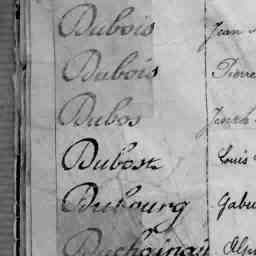 Dubois Jean
Dubois Pierre
Dubos Joseph
Duboste Louis
Dubourg
Duchainay